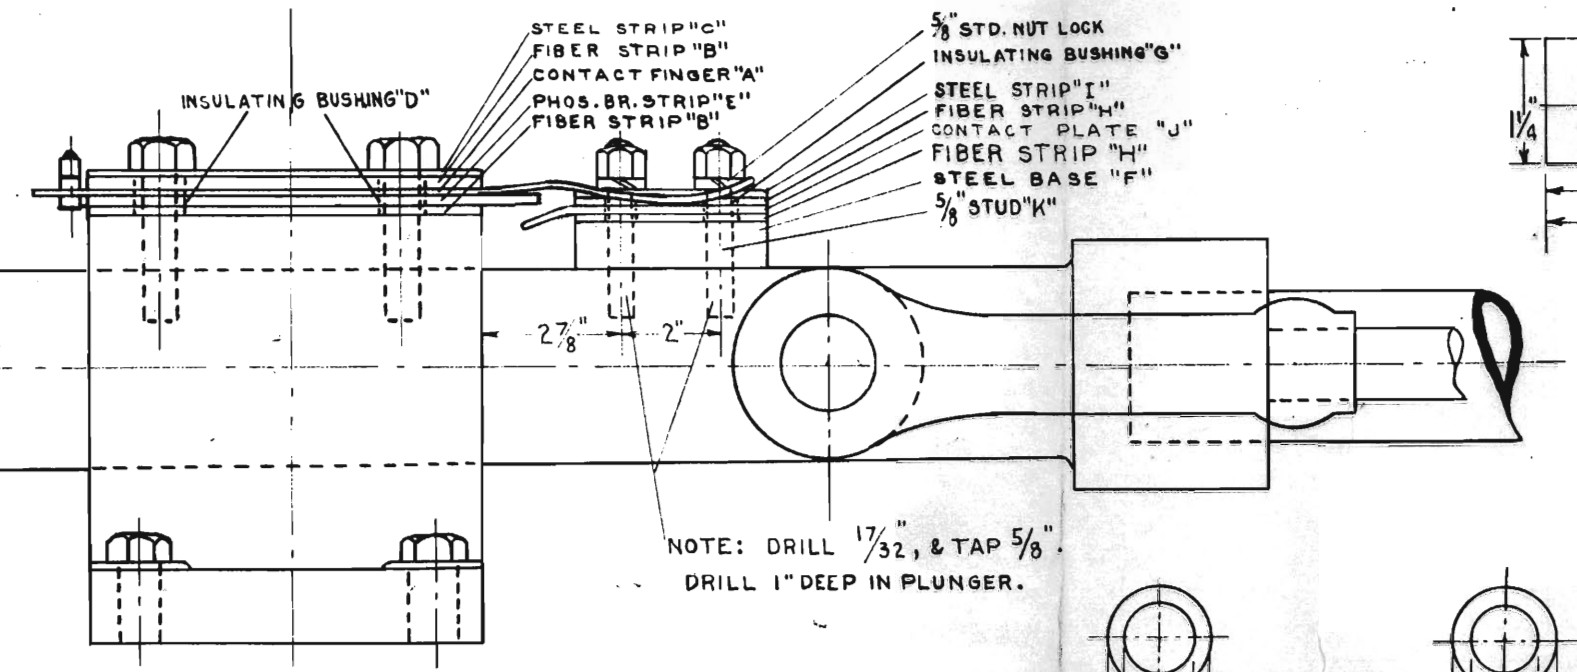 STEEL STRIP "C"
FIBER STRIP "B"
CONTACT FINGER "A"
PHOS. BR. STRIP "E"
FIBER STRIP "B"
INSULATING BUSHING "D"
5/8" STD. NUT LOCK
INSULATING BUSHING "G"
STEEL STRIP "I"
FIBER STRIP "H"
CONTACT PLATE "J"
FIBER STRIP "H"
STEEL BASE "F"
5/8" STUD "K"
1 1/4"
2 7/8"
2"
NOTE: DRILL 17/32", & TAP 5/8".
DRILL 1" DEEP IN PLUNGER.